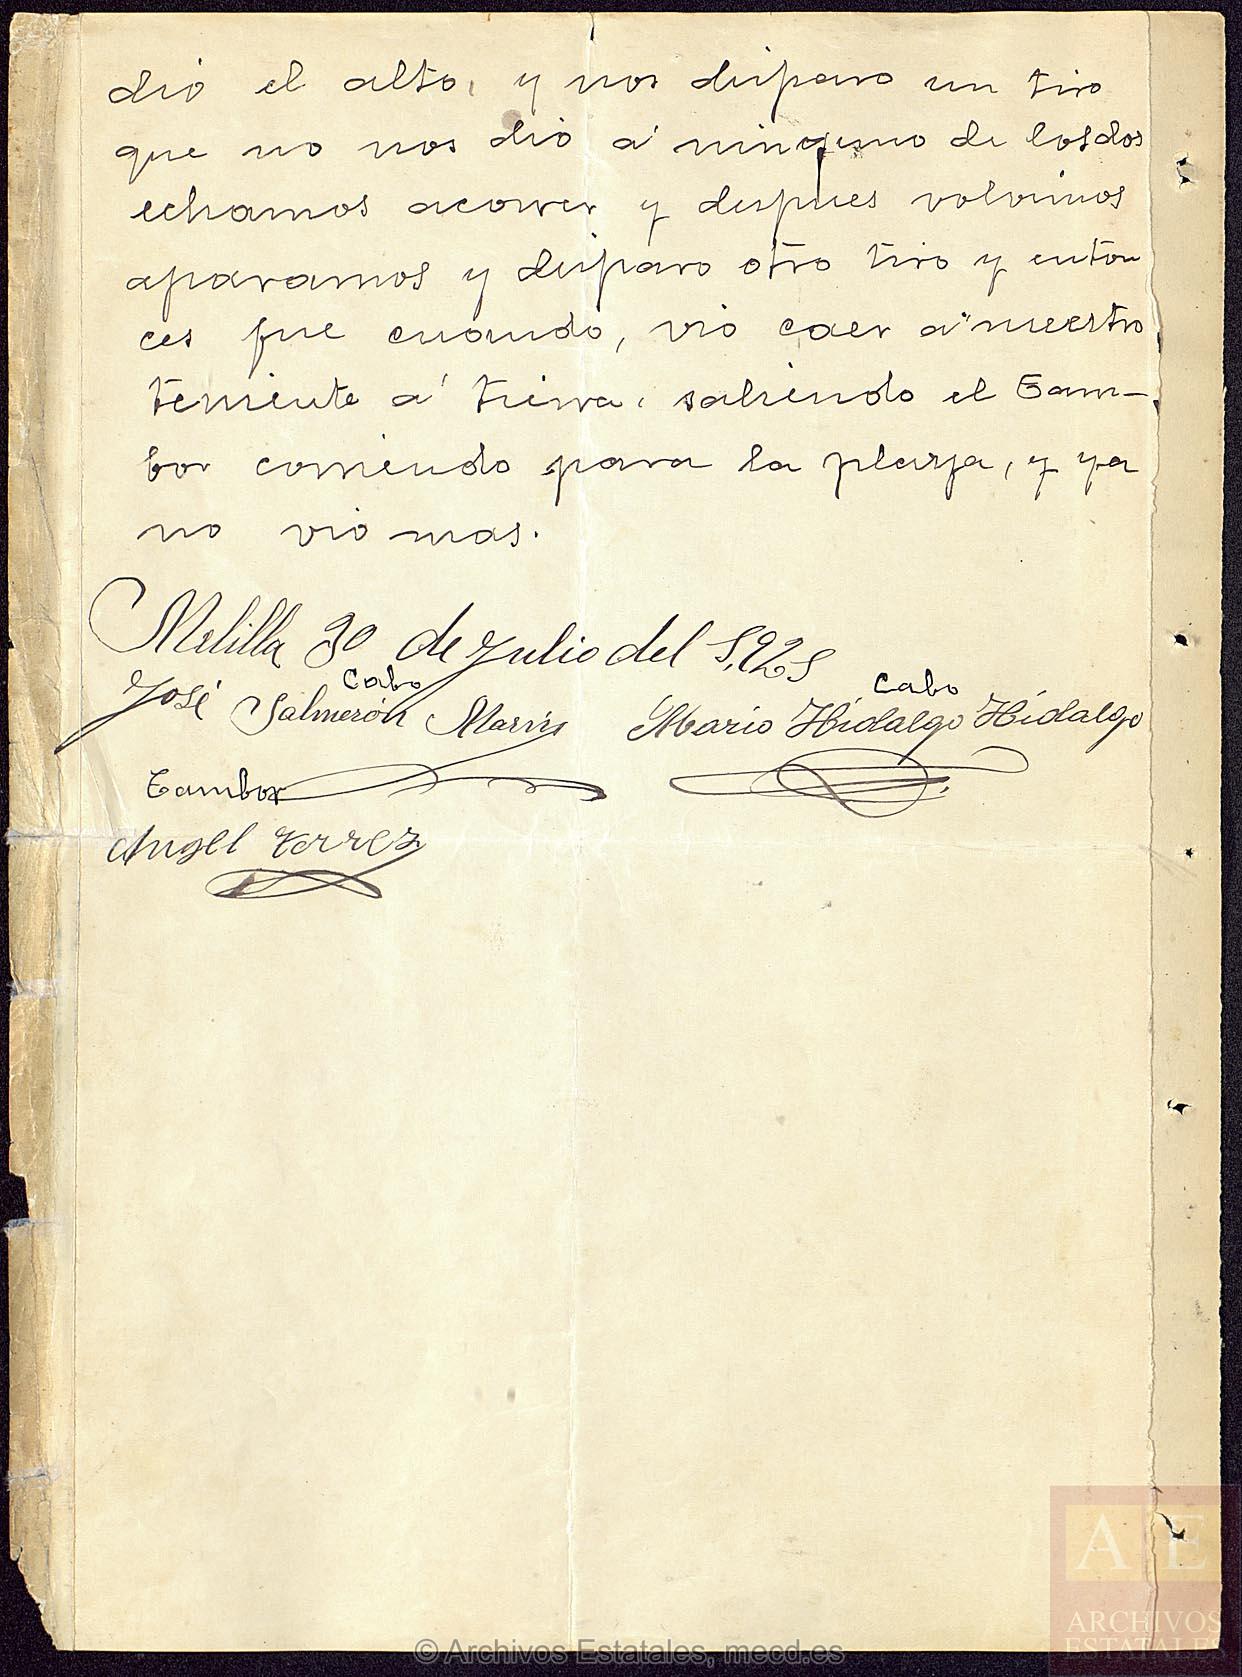 dió el alto, y nos disparo un tiro
que no nos dió á ninguno de los dos
echamos acorrer y despues volvimos
aparamos y disparo otro tiro y enton
ces fue cuando, vio caer a nuestro
teniente á tierra, saliendo el Tam-
bor corriendo para la plaza, y ya
no vio mas.
Melilla 30 de Julio del 1.925
Cabo Cabo
José Salmerón Marin Mario Hidalgo Hidalgo
Tambor
Angel Terrez
AE
ARCHIVOS
ESTATALES
© Archivos Estatales, mecd.es